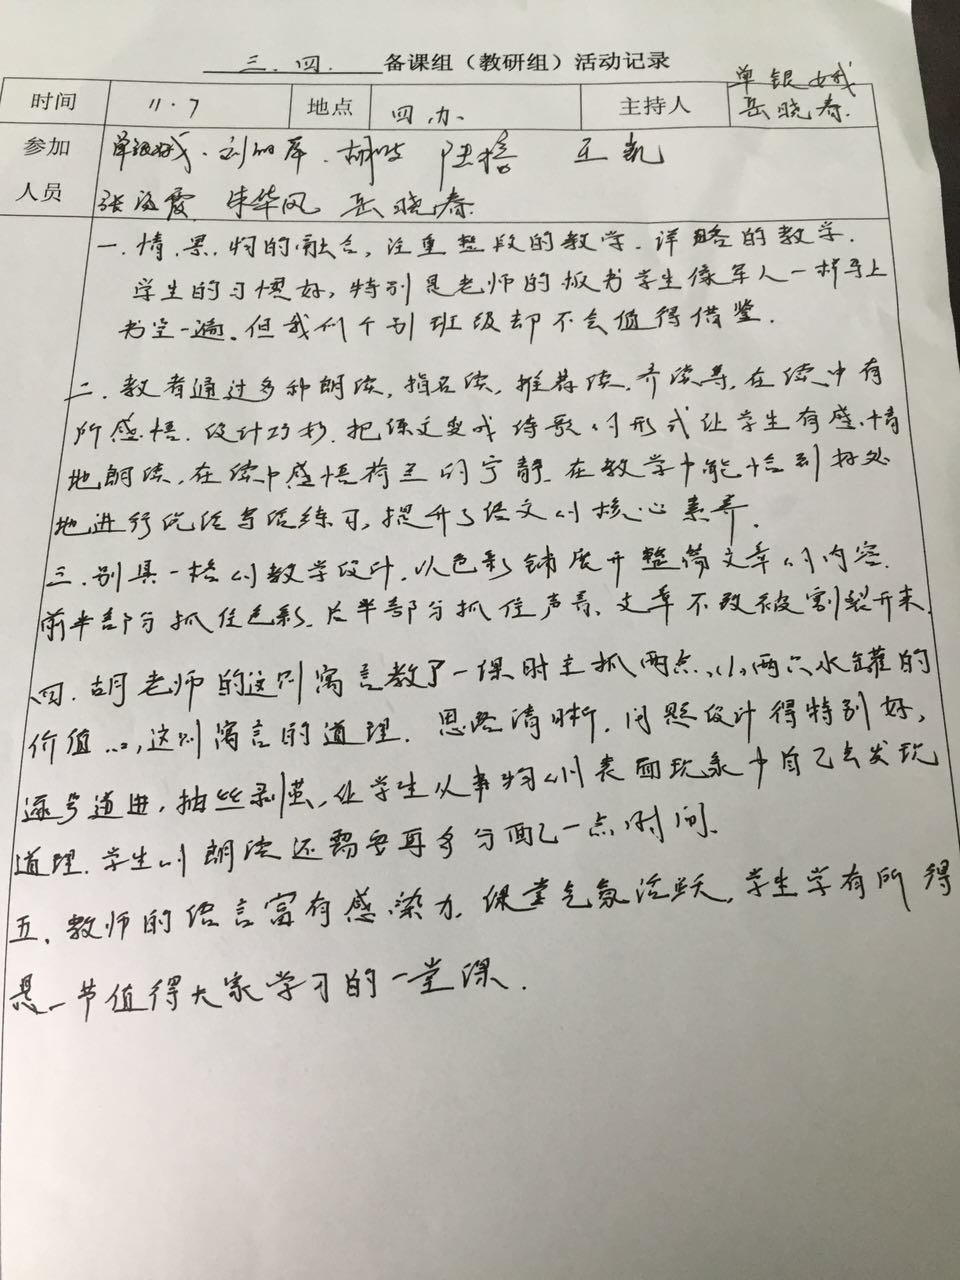 三、四. 备课组（教研组）活动记录
时间 11.7 地点 四办 主持人 单银娥 岳晓春
参加人员 单银娥、刘 胡 陆 王凯
张海霞 朱华凤 岳晓春
一.情、景、物的融合,注重整段的教学.详略的教学.
学生的习惯好,特别是老师的板书学生像军人一样马上
书空一遍.但我们个别班级却不会值得借鉴.
二.教者通过多种朗读,指名读,推荐读.齐读等,在读中有
所感悟.设计巧妙.把课文变成诗歌的形式让学生有感情
地朗读,在读中感悟荷兰的宁静.在教学中能恰到好处
地进行说话写话练习,提升了语文的核心素养.
三.别具一格的教学设计.以色彩铺展开整篇文章的内容.
前半部分抓住色彩.后半部分抓住声音、文章不致被割裂开来.
四.胡老师的这则寓言教了一课时主抓两点.(1),两只水罐的
价值(2),这则寓言的道理.思路清晰.问题设计得特别好,
逐步道进,抽丝剥茧,让学生从事物的表面现象中自己去发现
道理.学生的朗读还需要再多分配一点时间.
五、教师的语言富有感染力.课堂气氛活跃,学生学有所得
是一节值得大家学习的一堂课.